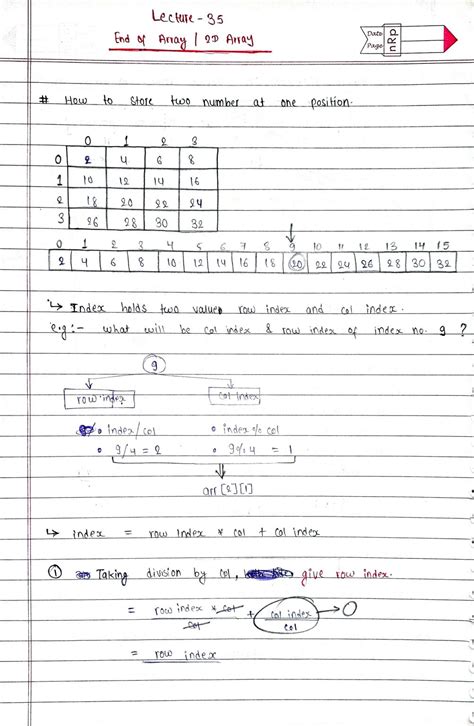 Lecture - 35
End of Array / 2D Array
Date
Page
nRp
# How to store two number at one position.
0 1 2 3
0 2 4 6 8
1 10 12 14 16
2 18 20 22 24
3 26 28 30 32
0 1 2 3 4 5 6 7 8 9 10 11 12 13 14 15
2 4 6 8 10 12 14 16 18 20 22 24 26 28 30 32
↳ Index holds two value row index and col index.
e.g :- what will be col index & row index of index no. 9 ?
9
row index col index
• index/col • index % col
• 9/4 = 2 • 9%4 = 1
arr [2][1]
↳ index = row index * col + col index
① Taking division by col, give row index.
= row index * col / col + col index / col → 0
= row index